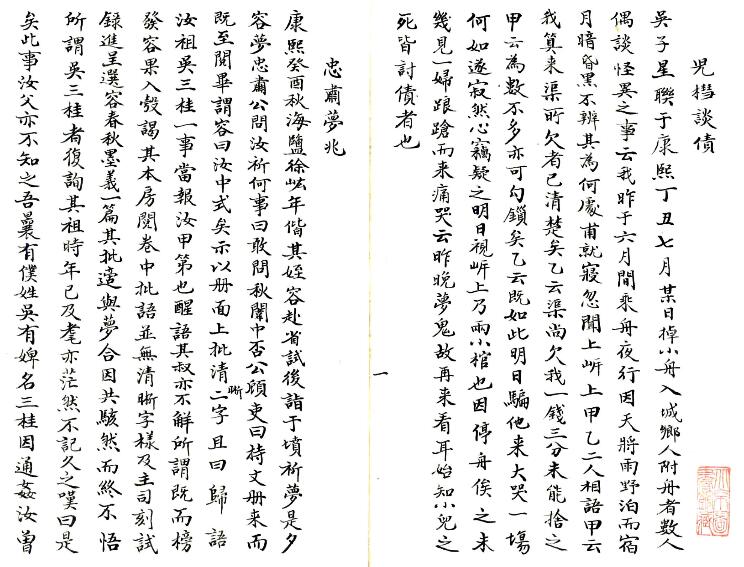 児檔談債
吳子星聯于康熙丁丑七月某日棹小舟入城鄉人附舟者數人
偶談怪異之事云我昨于六月間乘舟夜行因天將雨野泊而宿
月暗昏黑不辨其為何處甫就寢忽聞上岍上甲乙二人相語甲云
我算来渠所欠者已清楚矣乙云渠尚欠我一錢三分未能捨之
甲云為數不多亦可勾鎖矣乙云既如此明日騙他来大哭一塲
何如遂寂然心竊疑之明日視岍上乃兩小棺也因停舟俟之未
幾見一婦踉蹌而来痛哭云昨晚夢鬼故再来看耳始知小兒之
死皆討債者也
一
忠肅夢兆
康熙癸酉秋海鹽徐岦年偕其姪容赴省試後詣于墳祈夢是夕
容夢忠肅公問汝祈何事曰敢問秋闈中否公顧吏曰持文册来而
既至閱畢謂容曰汝中式矣示以册面上批清晣二字且曰歸語
汝祖吳三桂一事當報汝甲第也醒語其叔亦不解所謂既而榜
發容果入彀謁其本房閱卷中批語並無清晣字樣及主司刻試
録進呈選容春秋墨義一篇其批適與夢合因共駭然而終不悟
所謂吳三桂者復詢其祖時年已及耄亦茫然不記久之嘆曰是
矣此事汝父亦不知之吾曩有僕姓吳有婢名三桂因通姦汝曾